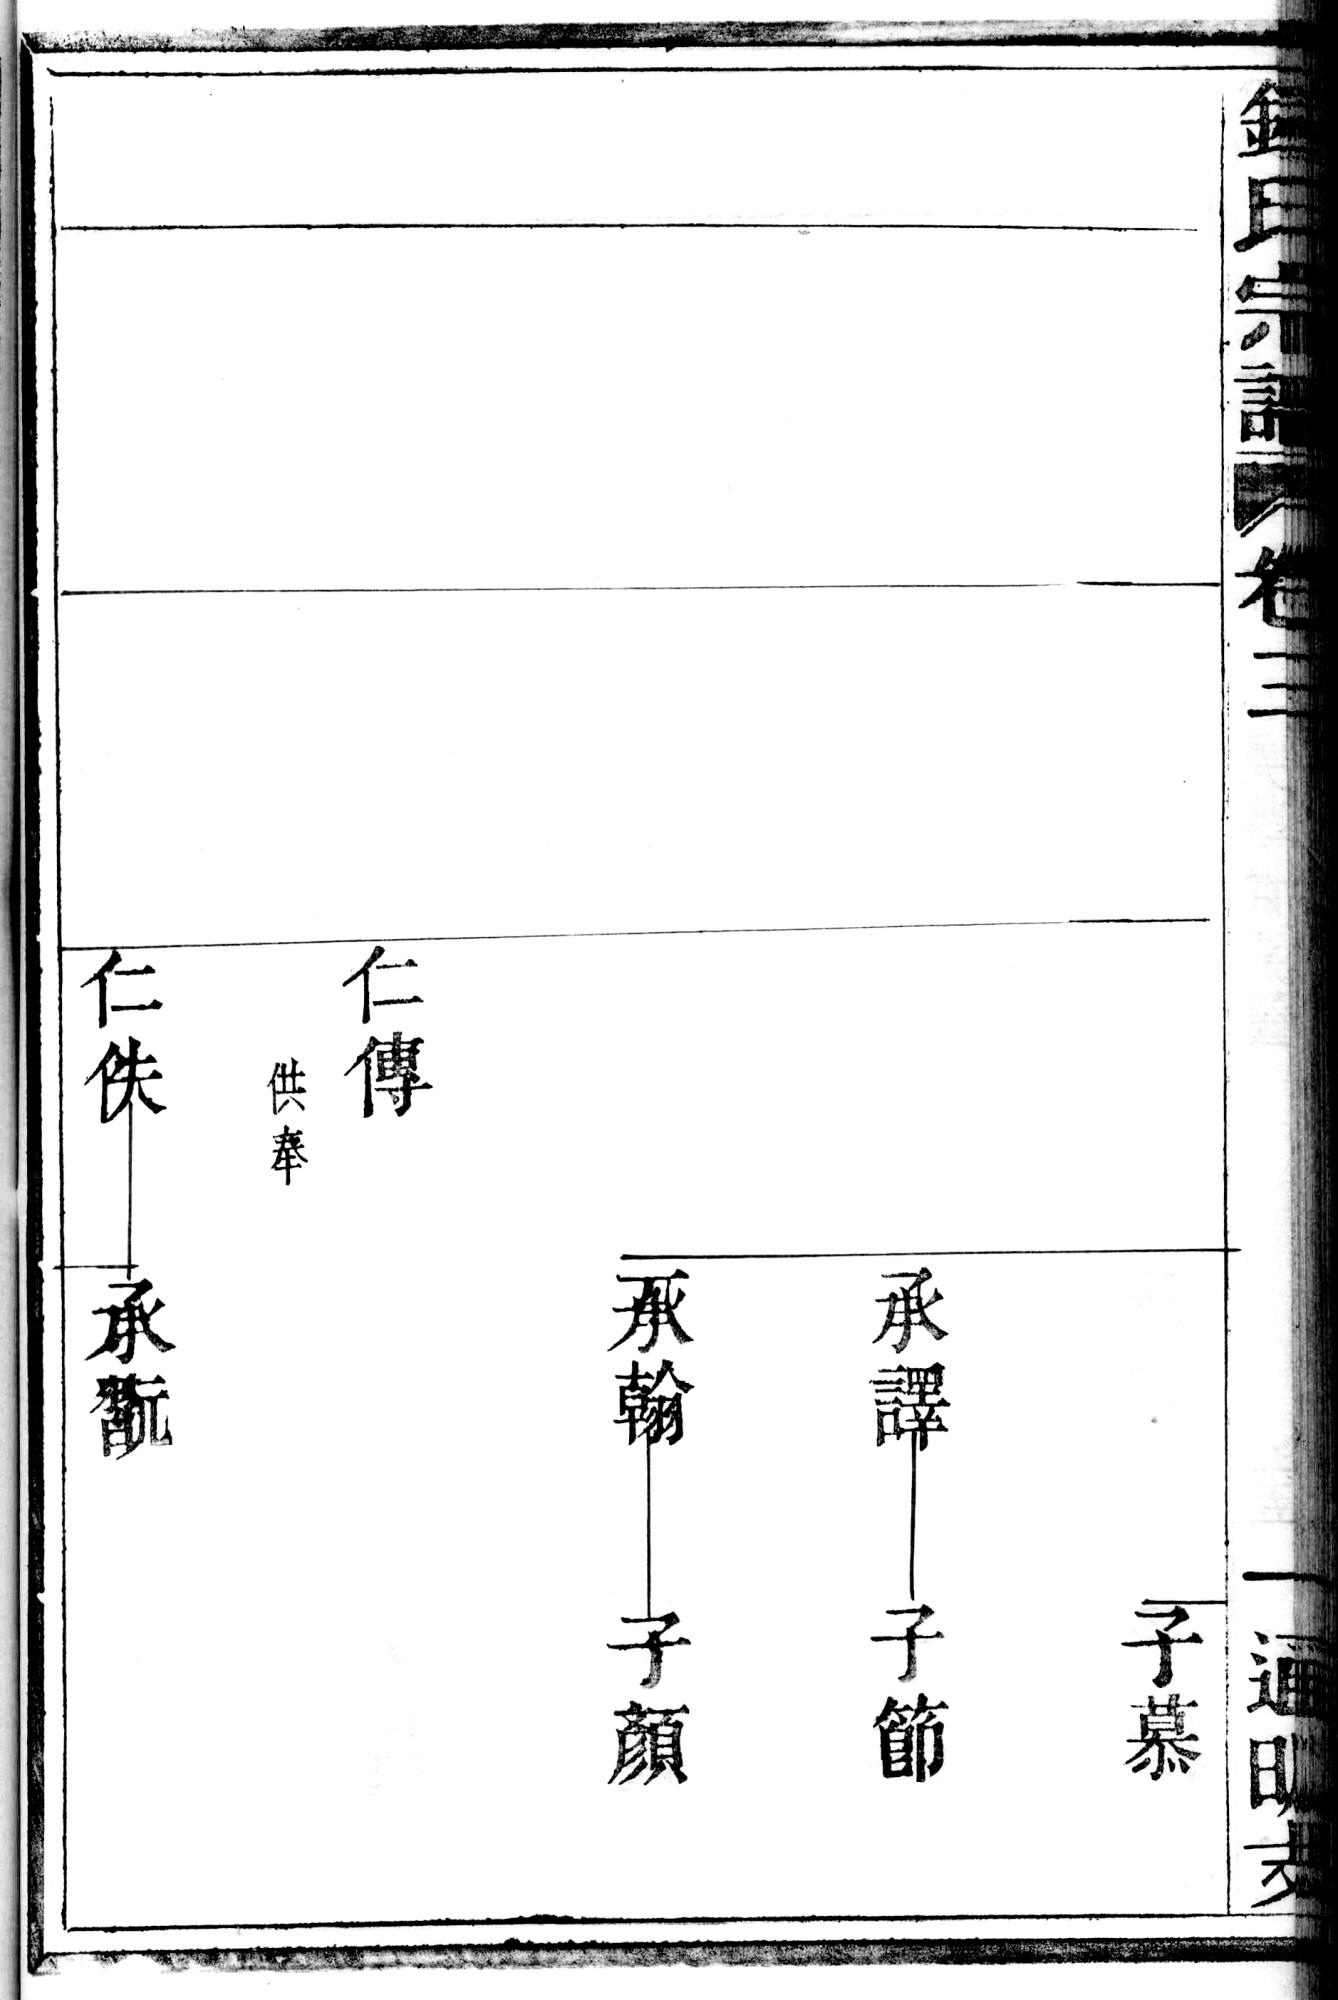 氏宗譜
卷三
一
通明支
子慕
承譯
子節
承翰
子顏
仁傳
供奉
仁佚
承翫